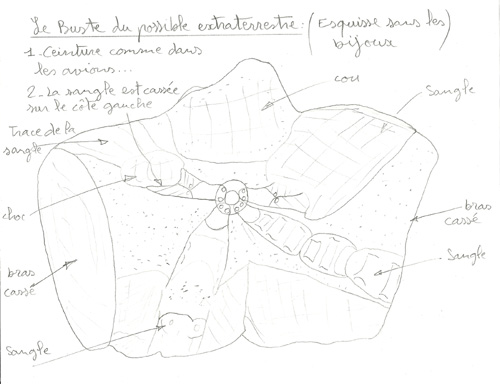 Le Buste du possible extraterrestre: (Esquisse sans les
bijoux)
1. Ceinture comme dans
les avions...
2. La sangle est cassée
sur le côté gauche
cou
Sangle
Trace de la
sangle
choc
bras
cassé
bras
cassé
Sangle
Sangle